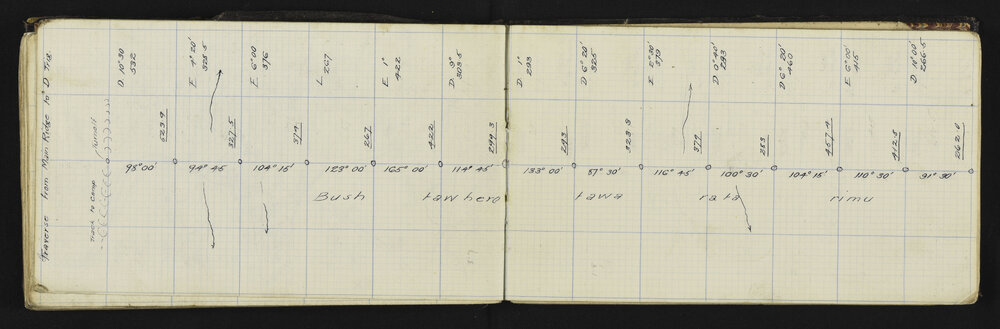 Traverse from Main Ridge to D Trig
Track to Camp
D. 10° 30
532
E 4° 20'
328.5
E 6° 00
376
L
267
E 1°
422
D. 9°
303.5
D 1°
293
D 6° 20'
325
E 2° 30'
379
D 0° 40'
283
D 6° 20'
460
E 6° 00'
415
D 10° 00'
266.5
523.9
327.5
374
267
422
299.3
293
323.3
379
283
457.4
412.5
262.6
98° 00'
94° 45
104° 15'
123° 00'
165° 00'
114° 45'
133° 00'
87° 30'
116° 45'
100° 30'
104° 15'
110° 30'
91° 30'
Bush
tawhero
tawa
rata
rimu